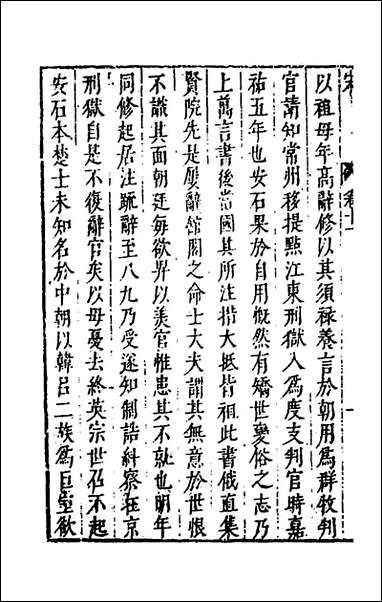 以祖母年高辭修以其須祿養言於朝用爲群牧判
官請知常州移提點江東刑獄入爲度支判官時嘉
祐五年也安石果於自用慨然有矯世變俗之志乃
上萬言書後當國其所注措大抵皆祖此書俄直集
賢院先是屢辭館閣之命士大夫謂其無意於世恨
不識其面朝廷每欲畀以美官惟患其不就也明年
同修起居注䟽辭至八九乃受遂知制誥糾察在京
刑獄自是不復辭官矣以母憂去終英宗世召不起
安石本楚士未知名於中朝以韓吕二族爲巨室欲